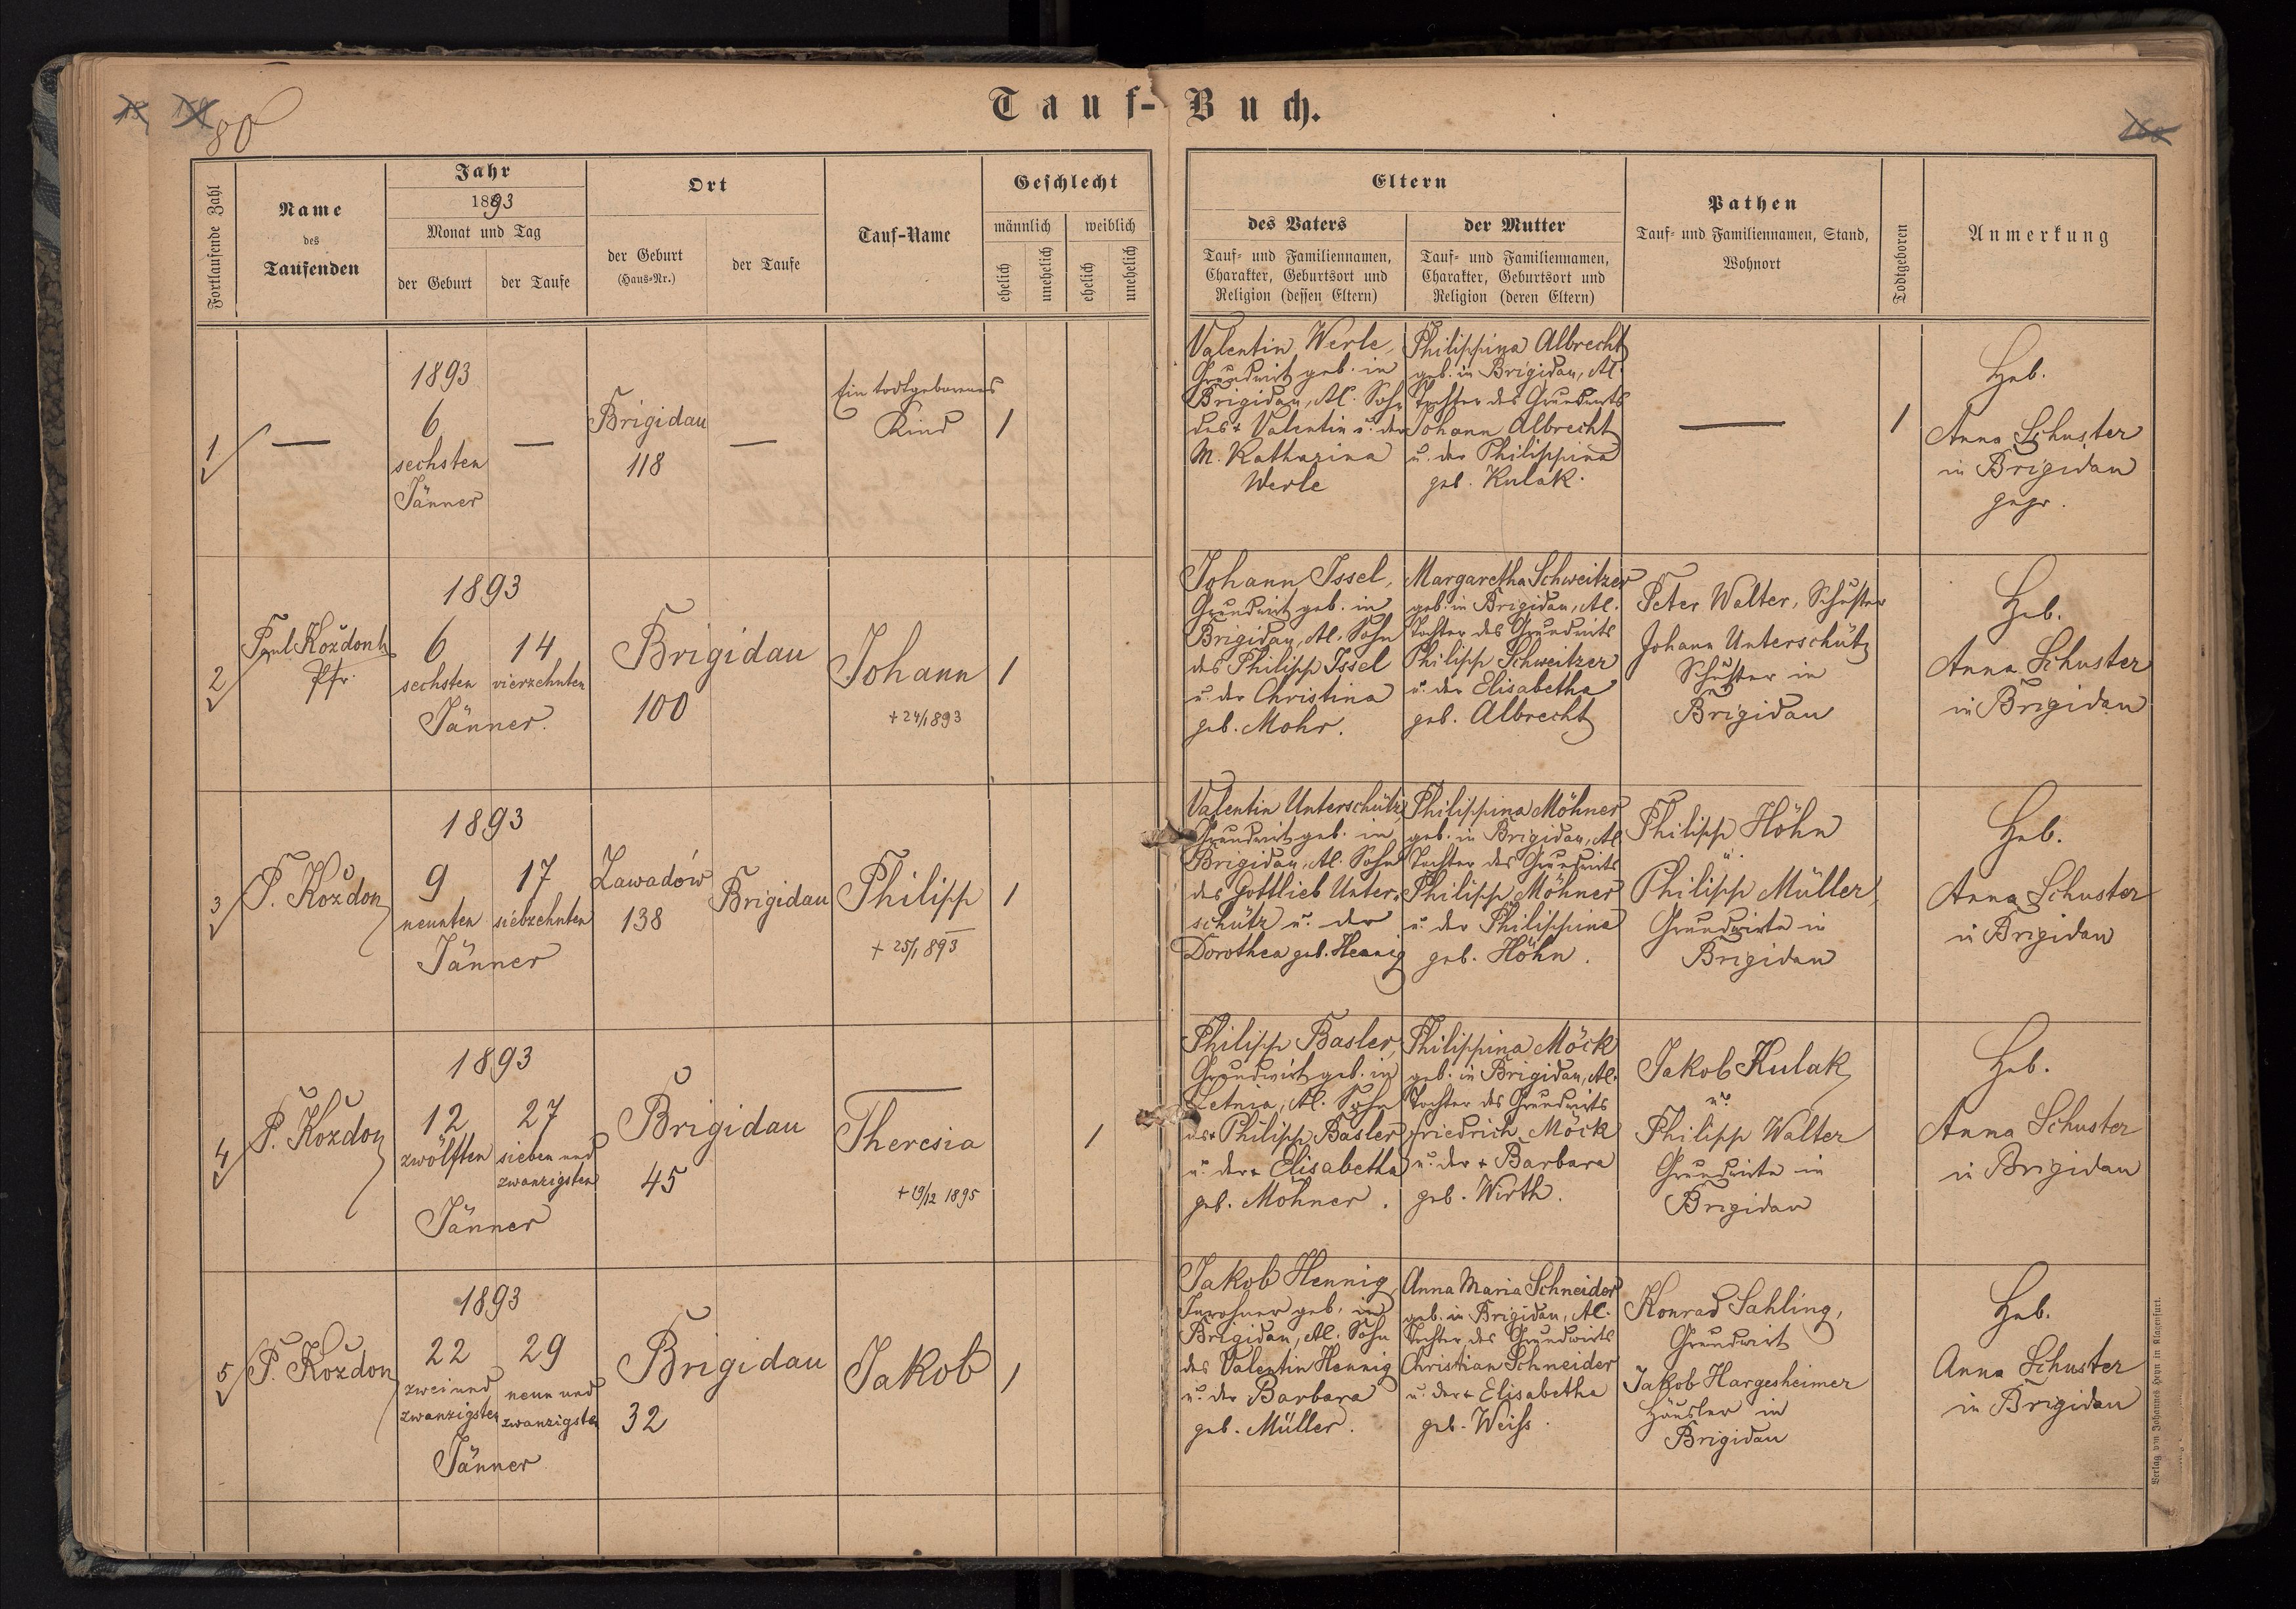 80
Tauf-Buch.
Fortlaufende Zahl
Name
des
Taufenden
Jahr
1893
Monat und Tag
der Geburt
der Taufe
Ort
der Geburt
(Haus-Nr.)
der Taufe
Tauf-Name
Geschlecht
männlich
weiblich
ehelich
unehelich
ehelich
unehelich
Eltern
des Vaters
Tauf- und Familiennamen,
Charakter, Geburtsort und
Religion (dessen Eltern)
der Mutter
Tauf- und Familiennamen,
Charakter, Geburtsort und
Religion (deren Eltern)
Pathen
Tauf- und Familiennamen, Stand,
Wohnort
Todtgeboren
Anmerkung
1
—
1893
6
sechsten
Jänner
—
Brigidau
118
—
Ein todtgeborenes
Kind
1
Valentin Werle,
Grundwirt geb. in
Brigidau, Al. Sohn
des + Valentin u. der
M. Katharina
Werle
Philippina Albrecht
geb. in Brigidau, Al.
Tochter des Grundwirts
Johann Albrecht
u. der Philippina
geb. Kulak.
—
1
Heb.
Anna Schuster
in Brigidau
gepr.
2
Paul Kozdon
Pfr.
1893
6 14
sechsten vierzehnten
Jänner.
Brigidau
100
Johann
+ 24/1 893
1
Johann Issel,
Grundwirt geb. in
Brigidau, Al. Sohn
des Philipp Issel
u. der Christina
geb. Mohr.
Margaretha Schweitzer
geb. in Brigidau, Al.
Tochter des Grundwirts
Philipp Schweitzer
u. der Elisabetha
geb. Albrecht
Peter Walter, Schuster
Johann Unterschütz
Schuster in
Brigidau
Heb.
Anna Schuster
in Brigidau
3
P. Kozdon
1893
9 17
neunten siebzehnten
Jänner
Zawadów
138
Brigidau
Philipp
+ 25/1 893
1
Valentin Unterschütz,
Grundwirt geb. in
Brigidau, Al. Sohn
des Gottlieb Unter-
schütz u. der
Dorothea geb. Hennig
Philippina Möhner
geb. in Brigidau, Al.
Tochter des Grundwirts
Philipp Möhner
u. der Philippina
geb. Höhn.
Philipp Höhn
u.
Philipp Müller,
Grundwirte in
Brigidau
Heb.
Anna Schuster
in Brigidau
4
P. Kozdon
1893
12 27
zwölften sieben und
zwanzigsten
Jänner
Brigidau
45
Theresia
+ 19/12 1895
1
Philipp Basler,
Grundwirt geb. in
Letnia, Al. Sohn
des + Philipp Basler
u. der + Elisabetha
geb. Möhner.
Philippina Möck
geb. in Brigidau, Al.
Tochter des Grundwirts
Friedrich Möck
u. der + Barbara
geb. Wirth.
Jakob Kulak
u.
Philipp Walter
Grundwirte in
Brigidau
Heb.
Anna Schuster
in Brigidau
5
P. Kozdon
1893
22 29
zwei und neun und
zwanzigsten zwanzigsten
Jänner
Brigidau
32
Jakob
1
Jakob Hennig,
Inwohner geb. in
Brigidau, Al. Sohn
des Valentin Hennig
u. der Barbara
geb. Müller.
Anna Maria Schneider
geb. in Brigidau, Al.
Tochter des Grundwirts
Christian Schneider
u. der + Elisabetha
geb. Weiss.
Konrad Sahling,
Grundwirt
Jakob Hargesheimer
Häusler in
Brigidau
Heb.
Anna Schuster
in Brigidau
Verlag von Johannes Heyn in Klagenfurt.